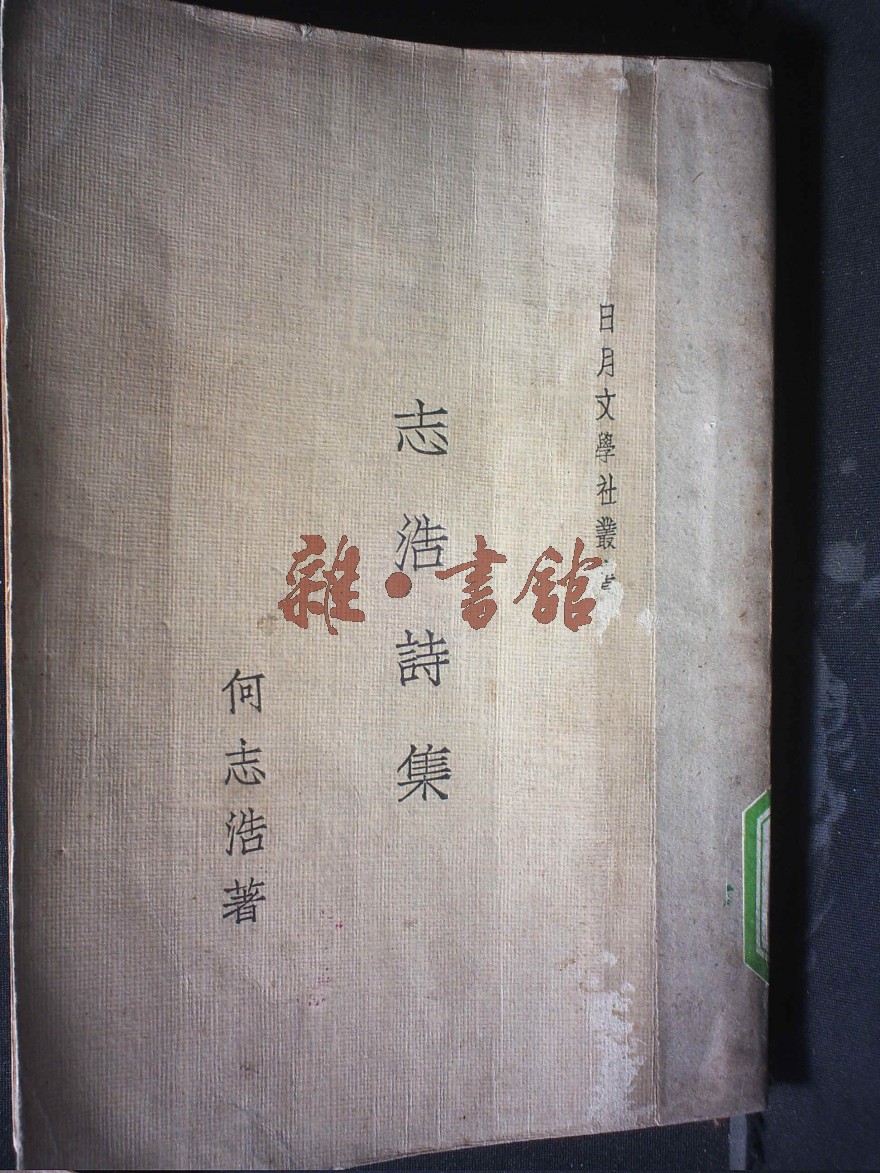 日月文學社叢書
志浩詩集
何志浩著
雜·書館